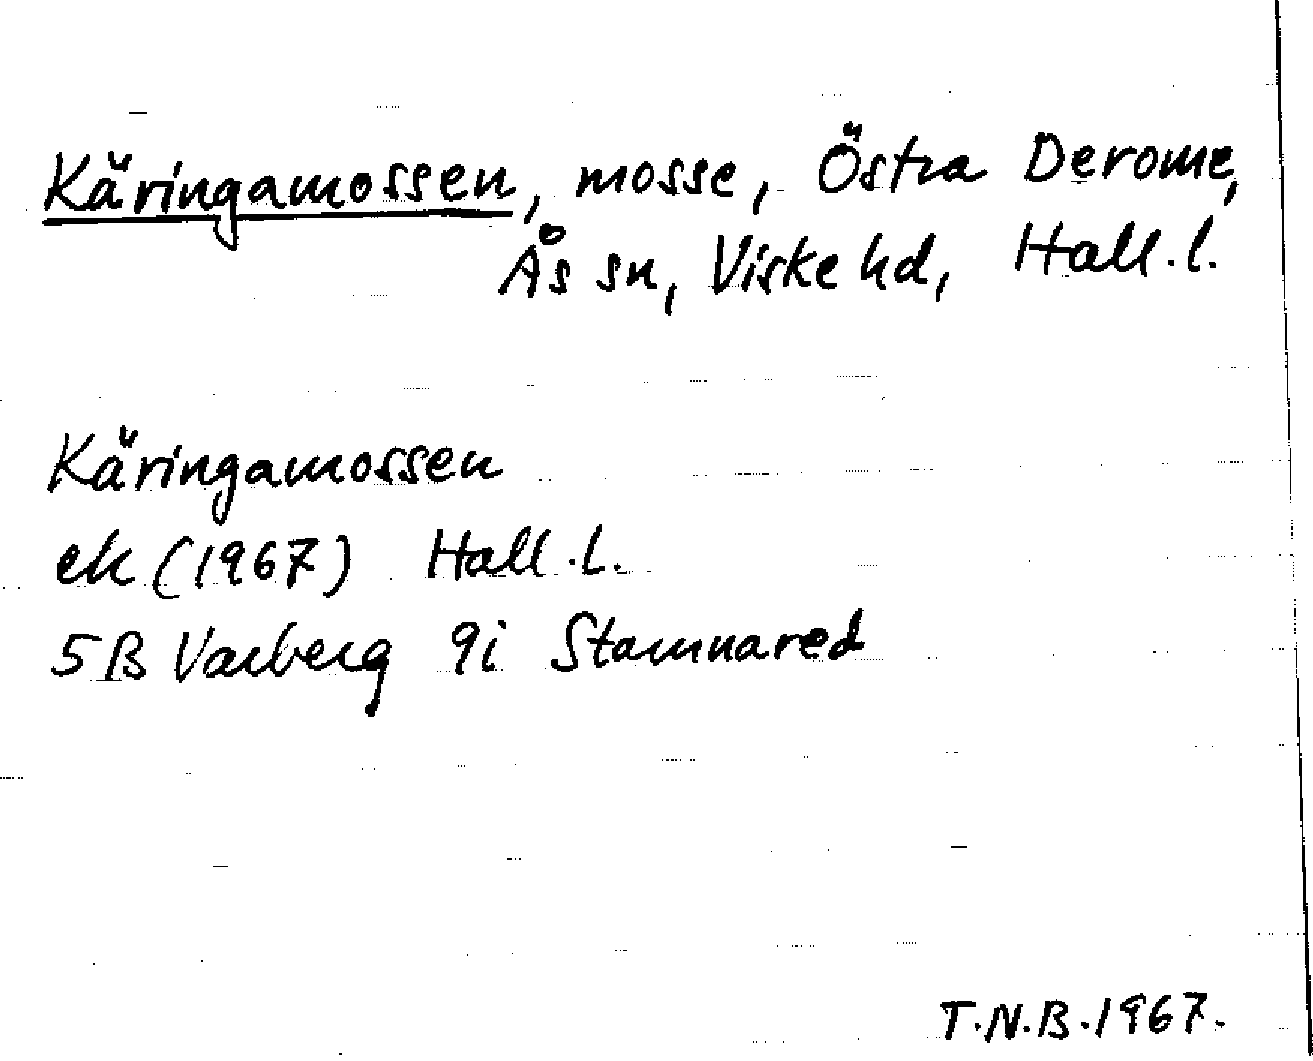 Käringamossen, mosse, Östra Derome,
Ås sn, Viske hd, Hall.l.
Käringamossen
ek (1967) Hall.l.
5B Varberg 9i Stamnared
T.N.B.1967.